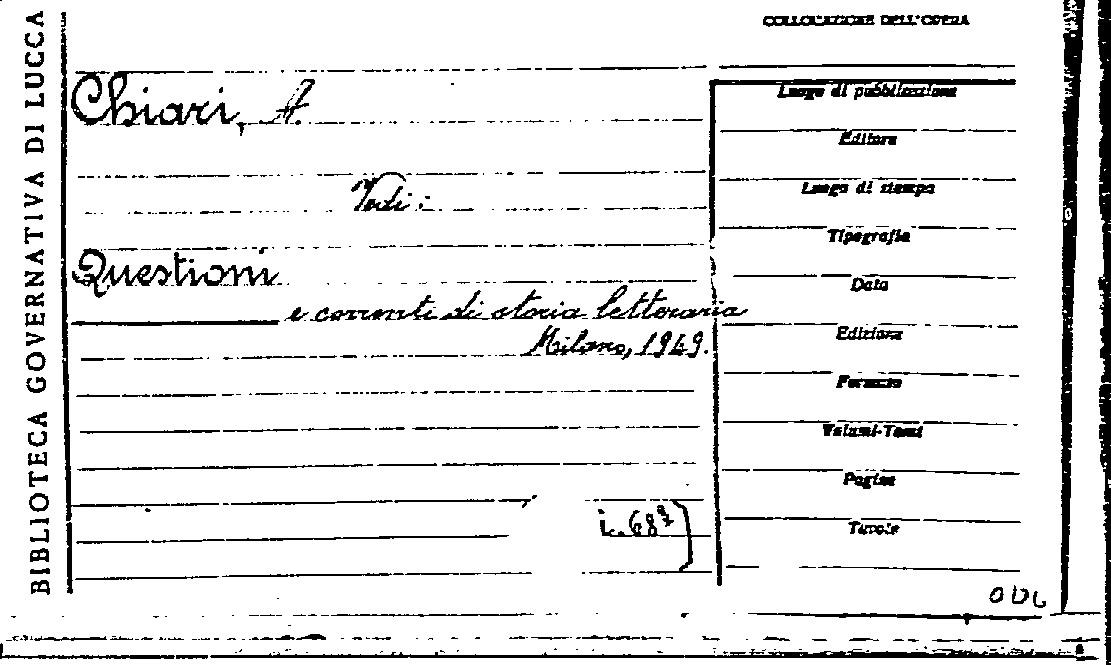 BIBLIOTECA GOVERNATIVA DI LUCCA
COLLOCAZIONE DELL'OPERA
Chiari, A.
Vedi:
Questioni
e correnti di storia letteraria
Milano, 1949.
Luogo di pubblicazione
Editore
Luogo di stampa
Tipografia
Data
Edizione
Formato
Volumi-Tomi
Pagine
Tavole